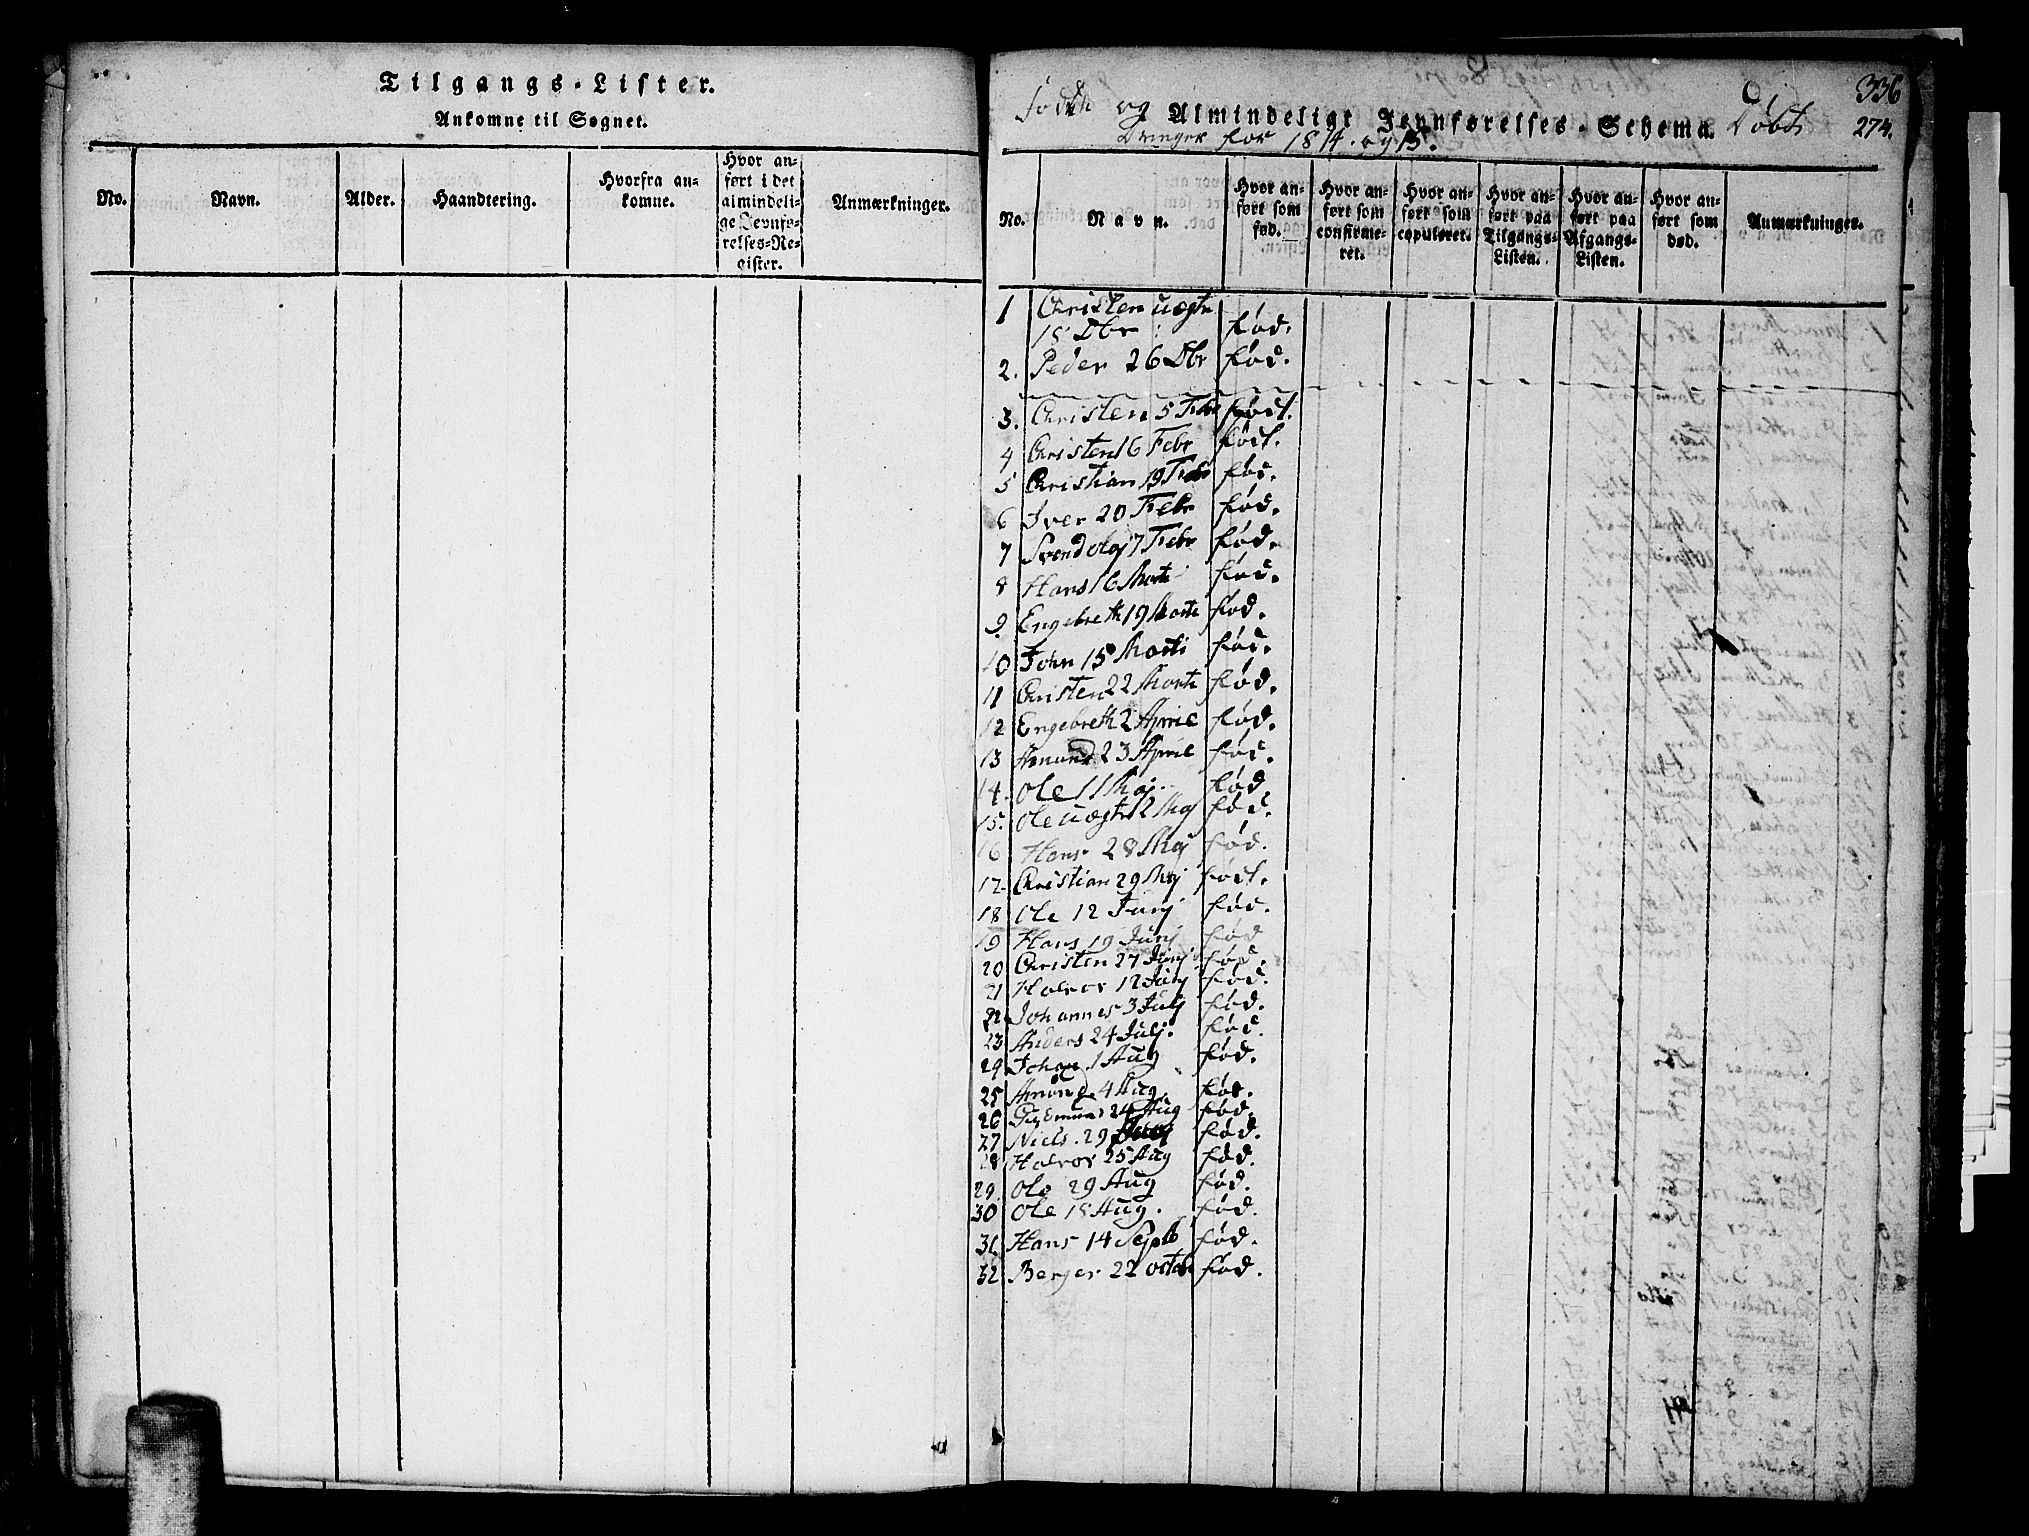 Tilgangs-Lister.
Ankomne til Sognet.
No.
Navn.
Alder.
Haandtering.
Hvorfra an-
komne.
Hvor an-
ført i det
almindeli-
ge Jevnfø-
relses-Re-
gister.
Anmærkninger.
336
og Almindeligt Jevnførelses-Schema. Døbte 274.
Drenger for 1814. og 15.
No.
Navn.
Hvor an-
ført som
fød.
Hvor an-
ført som
confirme-
ret.
Hvor an-
ført som
copuleret.
Hvor an-
ført paa
Tilgangs-
Listen.
Hvor an-
ført paa
Afgangs-
Listen.
Hvor an-
ført som
død.
Anmærkninger.
1 Christen uægte
18 Dbr fød.
2. Peder 26 Dbr fød.
3. Christen 5 Febr fød.
4 Christen 16 Febr fød.
5 Christian 19 Febr fød.
6 Iver 20 Febr fød.
7 Svend Olaj 7 Febr fød.
8 Hans 16 Marti fød.
9. Engebreth 19 Marti fød.
10 John 15 Marti fød.
11 Christen 22 Marti fød.
12 Engebreth 2 April fød.
13 Amund 23 April fød.
14. Ole 11 Maj. fød.
15. Ole uægte 12 Maj fød.
16 Hans 28 Maj fød.
17. Christian 29 Maj fød.
18 Ole 12 Junj fød.
19 Hans 19 Junj fød
20 Christen 27 Junj fød.
21 Halvor 12 Junj fød.
22 Johannes 3 Julj fød.
23 Anders 24 Julj. fød.
24 Johan 1 Aug fød.
25 4 Aug. fød.
26 24 Aug fød.
27 Niels. 29 Aug fød.
28 Halvor 25 Aug fød.
29. Ole 29 Aug fød.
30 Ole 18 Aug. fød.
31 Hans 14 Septb fød.
32 Berger 22 octbr fød.